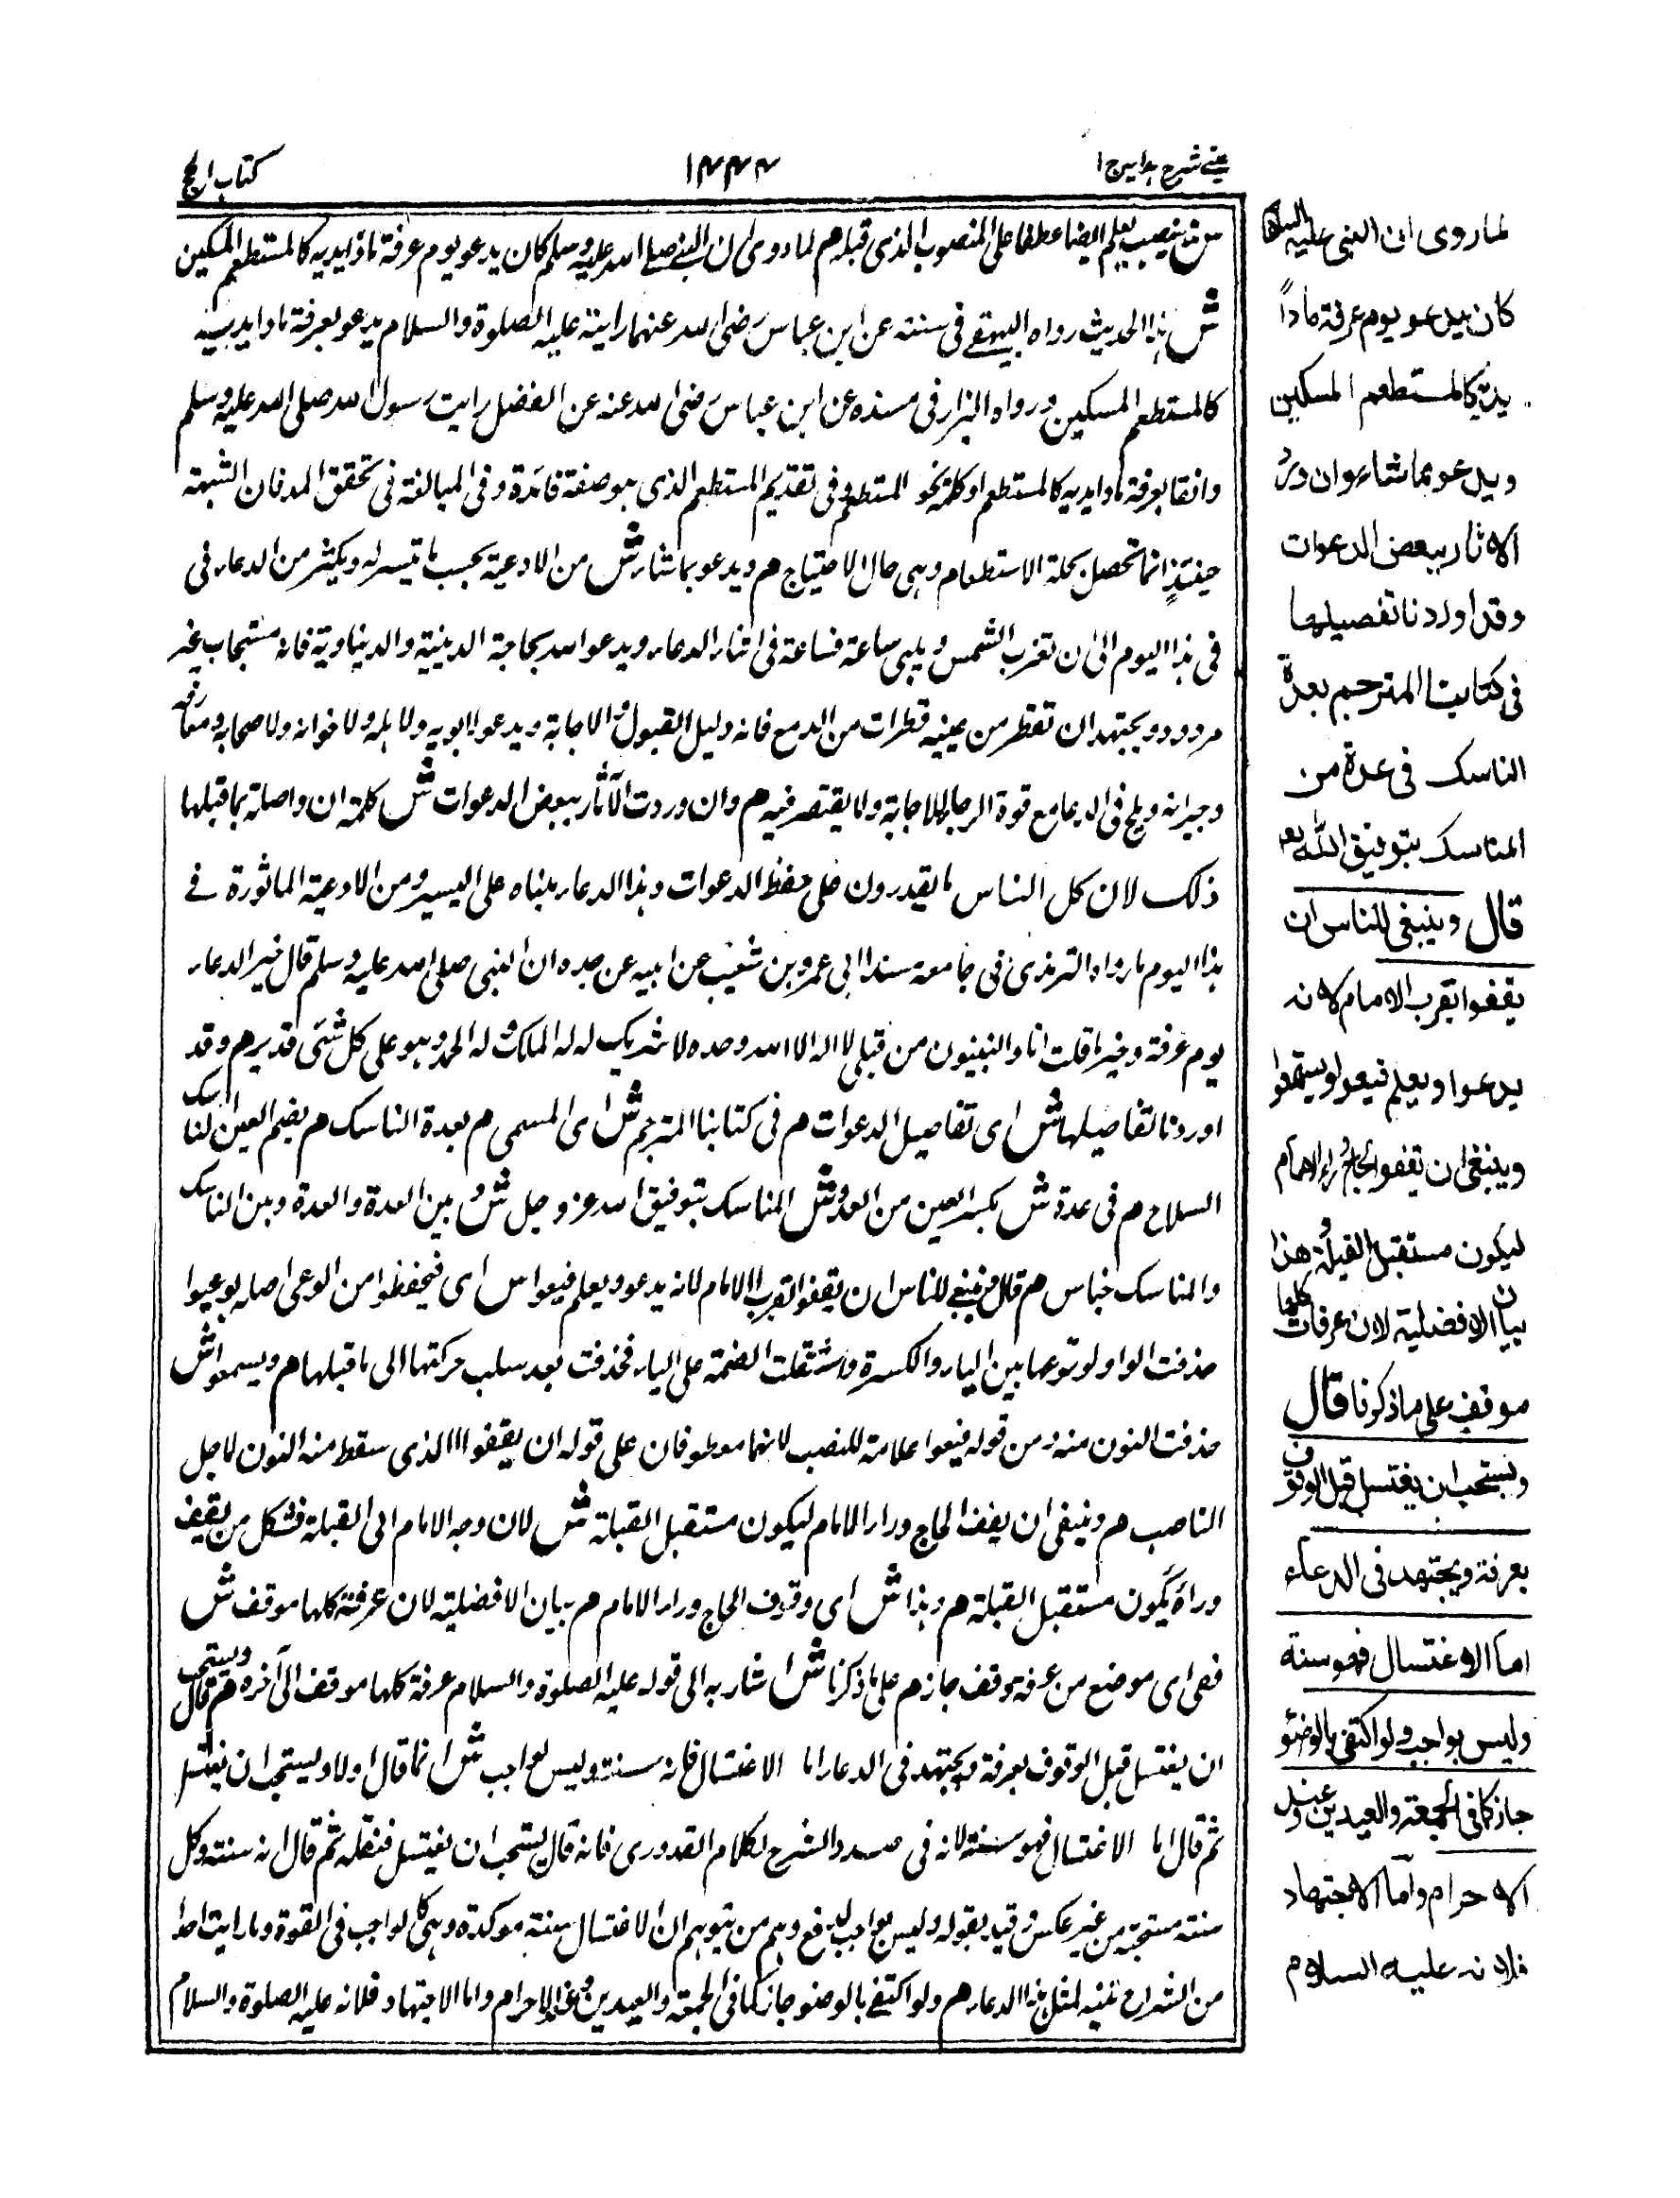 عينى شرح هدايه ج ا
١٤٤٤
كتاب الحج
ش بنصب يعلم ايضا عطفا على المنصوب الذى قبله هم لما روى ان النبى صلى الله عليه وسلم كان يدعو يوم عرفة مادا يديه كالمستطعم المسكين
ش هذا الحديث رواه البيهقى فى سننه عن ابن عباس رضى الله عنهما رايته عليه الصلوة والسلام يدعو بعرفة مادا يديه
كالمستطعم المسكين ورواه البزار فى مسنده عن ابن عباس رضى الله عنه عن الفضل رايت رسول الله صلى الله عليه وسلم
واقفا بعرفة مادا يديه كالمستطعم او كلمة نحو المستطعم وفى تقديم المستطعم الذى هو صفة فائدة وفى المبالغة فى تحقق المد فان الشبهة
حينئذ انما تحصل بحلة الاستطعام وهى حال الاحتياج هم ويدعو بما شاء ش من الادعية بحسب ما تيسر له ويكثر من الدعاء فى
فى هذا اليوم الى ان تغرب الشمس ويلبى ساعة فساعة فى اثناء الدعاء ويدعو الله بحاجة الدينية والدنياوية فانه مستجاب غير
مردود ويجتهد ان تقطر من عينيه قطرات من الدمع فانه دليل القبول والاجابة ويدعو لابويه ولاهله ولاخوانه ولاصحابه ومعارفه
وجيرانه ويلح فى الدعا مع قوة الرجاء للاجابة ولا يقتصر فيه هم وان وردت الآثار ببعض الدعوات ش كلمة ان واصلة بما قبلها
ذلك لان كل الناس ما يقدرون على حفظ الدعوات وهذا الدعاء بناه على اليسير ومن الادعية الماثورة فے
هذا اليوم ما رواه الترمذى فى جامعه مسندا الى عمرو بن شعيب عن ابيه عن جده ان النبى صلى الله عليه وسلم قال خير الدعاء
يوم عرفة وخير ما قلت انا والنبيون من قبلى لا اله الا الله وحده لا شريك له له الملك وله الحمد وهو على كل شئى قدير هم وقد
اوردنا تفاصيلها ش اى تفاصيل الدعوات هم فى كتابنا المترجم ش اى المسمى م بعدة الناسك هم بضم العين لناسك
السلاح هم فى عدة ش بكسر العين من العد وش المناسك بتوفيق الله عز وجل ش وبين العدة والعدة وبين الناسك
والمناسك جناس هم قال وينبغى للناس ان يقفوا بقرب الامام لانه يدعو ويعلم فيعوا س اى فيحفظوا من الوعى اصله يوعيوا
حذفت الواو لوقوعها بين الياء والكسرة واستثقلت الضمة على الياء فحذفت بعد سلب حركتها الى ما قبلها هم ويسمعوا ش
حذفت النون منه ومن قوله فيعوا علامة للنصب لانهما معطوفان على قوله ان يقفوا الذى سقط منه النون لاجل
الناصب هم وينبغى ان يقف الحاج وراء الامام ليكون مستقبل القبلة ش لان وجه الامام الى القبلة فشكل من يقف
وراءه يكون مستقبل القبلة هم وهذا ش اى وقوف الحاج وراء الامام هم بيان الافضلية لان عرفة كلها موقف ش
ففى اى موضع من عرفة وقف جاز م على ما ذكرنا ش اشار به الى قوله عليه الصلوة والسلام عرفة كلها موقف الى آخره هم قال ويستحب
ان يغتسل قبل الوقوف بعرفة ويجتهد فى الدعاء اما الاغتسال فلانه سنة وليس بواجب ش انما قال اولا ويستحب ان يغتسل
ثم قال اما الاغتسال فهو سنة لانه فى صدد الشرح لكلام القدورى فانه قال يستحب ان يغتسل فنقله ثم قال انه سنة وكل
سنة مستحبة من غير عكس وقيد بقوله وليس بواجب ليدفع وهم من يتوهم ان الاغتسال سنة موكدة وهى كالواجب فى القوة وما رايت احدا
من الشراح تنبه لمثل هذا الدعاء هم ولو اكتفى بالوضوء جاز كما فى الجمعة والعيدين وعند الاحرام واما الاجتهاد فلانه عليه الصلوة والسلام
لما روى ان النبى عليه السلام
كان يدعو يوم عرفة ماداً
يديه كالمستطعم المسكين
ويدعو بما شاء وان ورد
الاثار ببعض الدعوات
وقد اوردنا تفصيلها
فى كتابنا المترجم بعدة
الناسك فى عدة من
المناسك بتوفيق الله تعالى
قال وينبغى للناس ان
يقفوا بقرب الامام لانه
يدعوا ويعلم فيعوا ويسمعوا
وينبغى ان يقفوا الحاج وراء الامام
ليكون مستقبل القبلة وهذا
بيان الافضلية لان عرفات كلها
موقف على ما ذكرنا قال
ويستحب ان يغتسل قبل الوقوف
بعرفة ويجتهد فى الدعاء
اما الاغتسال فهو سنة
وليس بواجب ولو اكتفى بالوضوء
جاز كما فى الجمعة والعيدين وعند
الاحرام واما الاجتهاد
فلانه عليه السلام